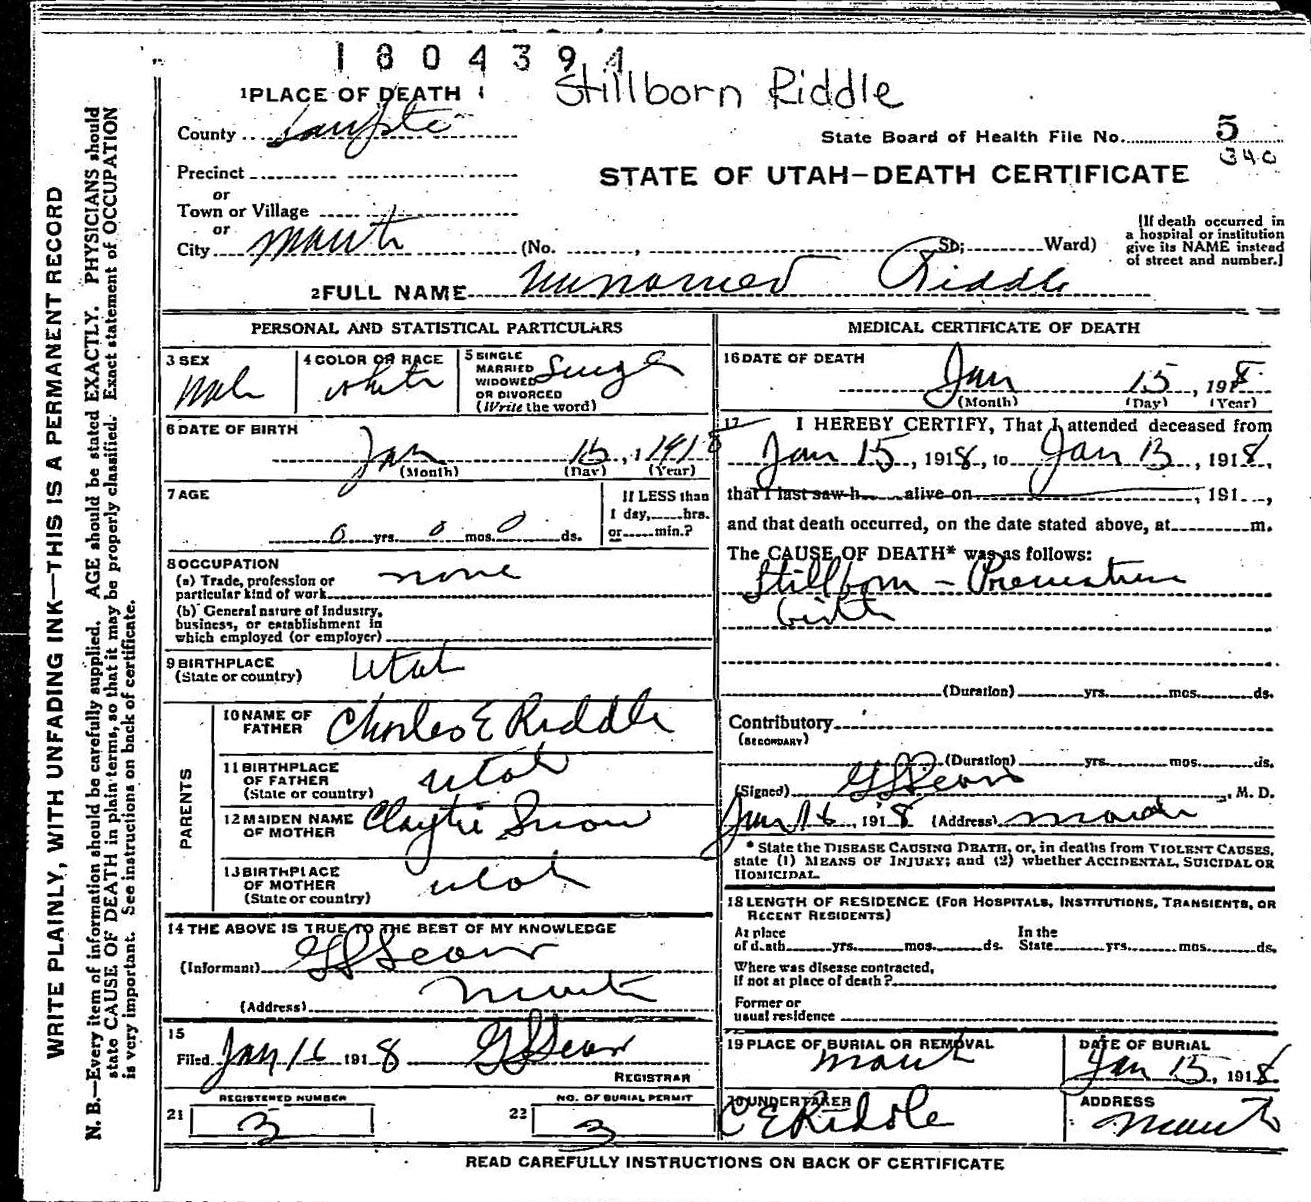 1804394
Stillborn Riddle
1 PLACE OF DEATH
County Sanpete
State Board of Health File No. 5
340
Precinct
or
Town or Village
or
City Manti (No. , St; Ward)
STATE OF UTAH—DEATH CERTIFICATE
[If death occurred in a hospital or institution give its NAME instead of street and number.]
2 FULL NAME Unnamed Riddle
PERSONAL AND STATISTICAL PARTICULARS
3 SEX Male
4 COLOR OR RACE white
5 SINGLE MARRIED WIDOWED OR DIVORCED (Write the word) Single
6 DATE OF BIRTH
Jan 15, 1918
(Month) (Day) (Year)
7 AGE
0 yrs. 0 mos. 0 ds.
If LESS than 1 day, hrs. or min.?
8 OCCUPATION
(a) Trade, profession or particular kind of work none
(b) General nature of Industry, business, or establishment in which employed (or employer)
9 BIRTHPLACE (State or country) Utah
PARENTS
10 NAME OF FATHER Charles E Riddle
11 BIRTHPLACE OF FATHER (State or country) Utah
12 MAIDEN NAME OF MOTHER Claytie Snow
13 BIRTHPLACE OF MOTHER (State or country) Utah
14 THE ABOVE IS TRUE TO THE BEST OF MY KNOWLEDGE
(Informant)
(Address) Manti
15
Filed Jan 16 1918
REGISTRAR
REGISTERED NUMBER
21 3
NO. OF BURIAL PERMIT
22 3
MEDICAL CERTIFICATE OF DEATH
16 DATE OF DEATH
Jan 15, 1918
(Month) (Day) (Year)
17 I HEREBY CERTIFY, That I attended deceased from
Jan 15, 1918, to Jan 15, 1918,
that I last saw h alive on , 191 ,
and that death occurred, on the date stated above, at m.
The CAUSE OF DEATH* was as follows:
Stillborn - Premature
birth
(Duration) yrs. mos. ds.
Contributory
(SECONDARY)
(Duration) yrs. mos. ds.
(Signed) , M. D.
Jan 16, 1918 (Address) Manti
* State the DISEASE CAUSING DEATH, or, in deaths from VIOLENT CAUSES, state (1) MEANS OF INJURY; and (2) whether ACCIDENTAL, SUICIDAL OR HOMICIDAL.
18 LENGTH OF RESIDENCE (FOR HOSPITALS, INSTITUTIONS, TRANSIENTS, OR RECENT RESIDENTS)
At place of death yrs. mos. ds. In the State yrs. mos. ds.
Where was disease contracted, if not at place of death?
Former or usual residence
19 PLACE OF BURIAL OR REMOVAL Manti
DATE OF BURIAL Jan 15, 1918
20 UNDERTAKER C E Riddle
ADDRESS Manti
READ CAREFULLY INSTRUCTIONS ON BACK OF CERTIFICATE
WRITE PLAINLY, WITH UNFADING INK—THIS IS A PERMANENT RECORD
N. B.—Every item of information should be carefully supplied. AGE should be stated EXACTLY. PHYSICIANS should
state CAUSE OF DEATH in plain terms, so that it may be properly classified. Exact statement of OCCUPATION
is very important. See instructions on back of certificate.